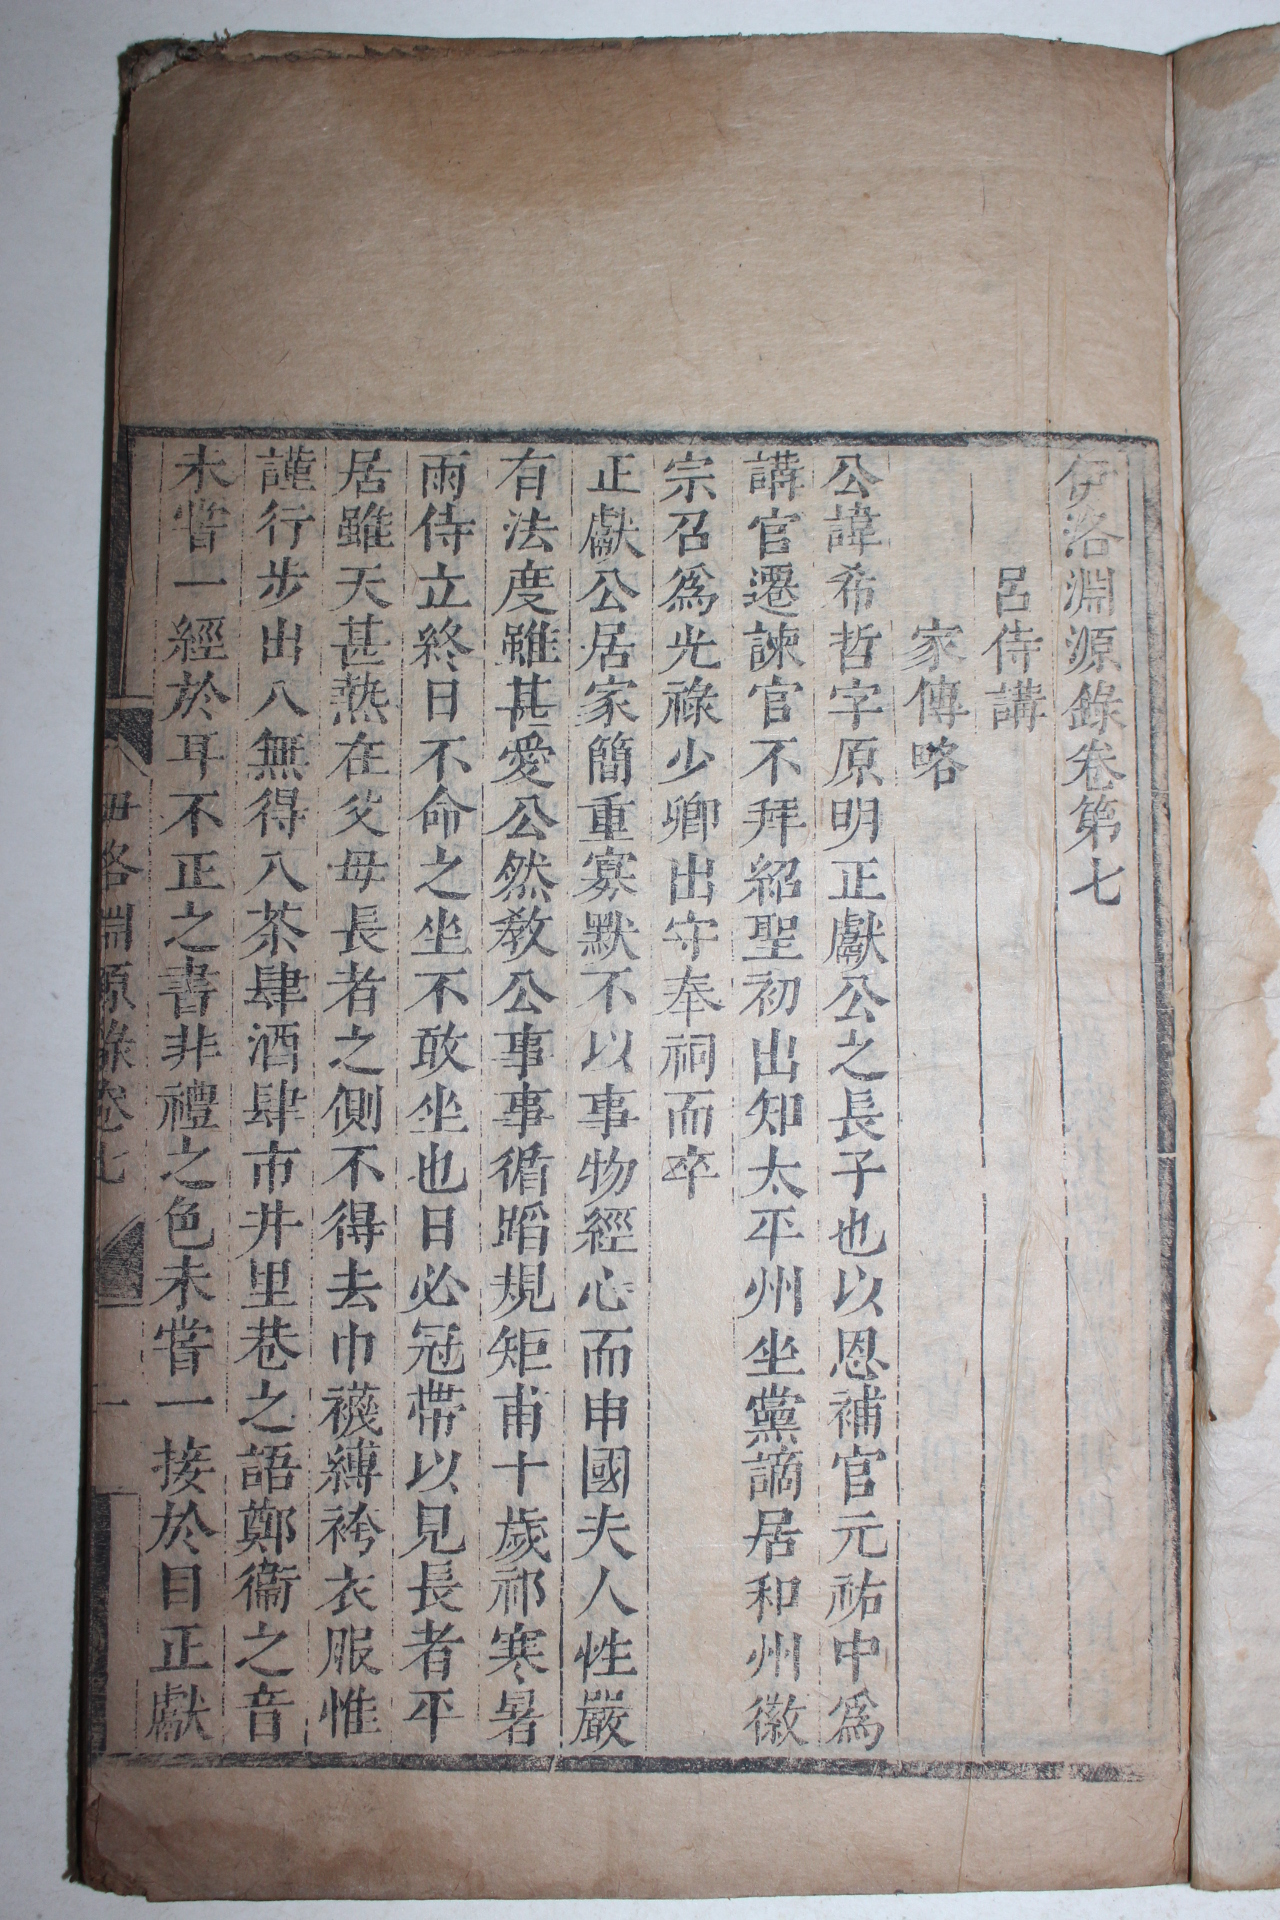 伊洛淵源錄卷第七
呂侍講
家傳略
公諱希哲字原明正獻公之長子也以恩補官元祐中爲
講官遷諫官不拜紹聖初出知太平州坐黨謫居和州徽
宗召爲光祿少卿出守奉祠而卒
正獻公居家簡重寡默不以事物經心而申國夫人性嚴
有法度雖甚愛公然敎公事事循蹈規矩甫十歲祁寒暑
雨侍立終日不命之坐不敢坐也日必冠帶以見長者平
居雖天甚熱在父母長者之側不得去巾襪縛袴衣服惟
謹行步出入無得入茶肆酒肆市井里巷之語鄭衞之音
未嘗一經於耳不正之書非禮之色未嘗一接於目正獻
伊洛淵源錄卷七 一